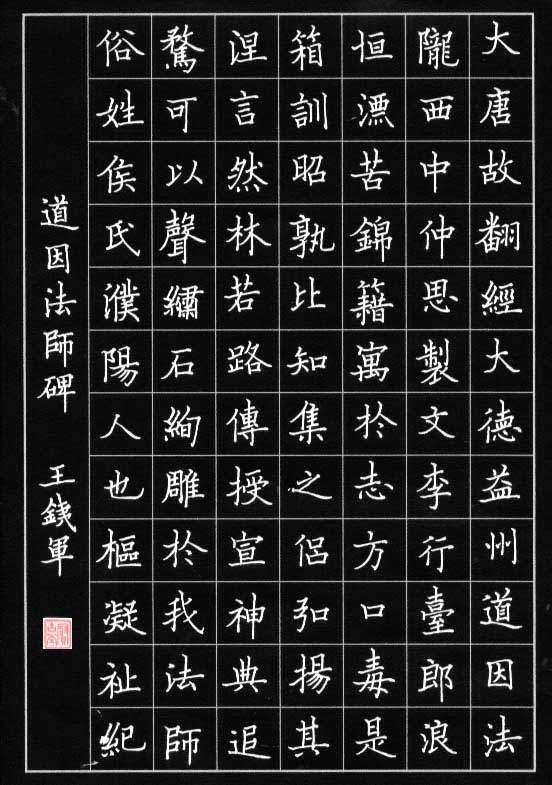 大唐故翻經大德益州道因法
隴西中仲思製文李行臺郎浪
恒漂苦錦籍寓於志方口毒是
箱訓昭孰比知集之侶弘揚其
涅言然林若路傳授宣神典追
騖可以聲繡石絢雕於我法師
俗姓侯氏濮陽人也樞凝祉紀
道因法師碑 王銕軍